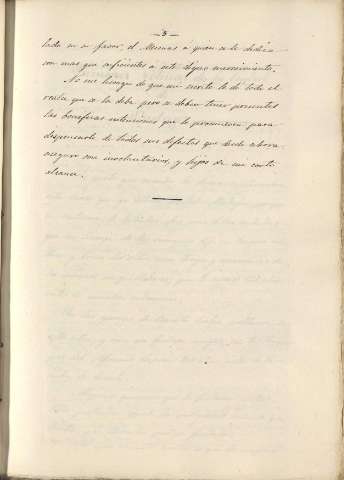 — 3 —
lada en su favor, el Mecenas á quien se le dedica
con mas que suficientes a este digno merecimiento.
No me lisongeo de que mi escrito le dé todo el
realce que se le debe, pero se deben tener presentes
las beneficas intenciones que lo promueven para
dispensarle de todos sus defectos que desde ahora
aseguro son involuntarios, y hijos de mi corto
alcance.